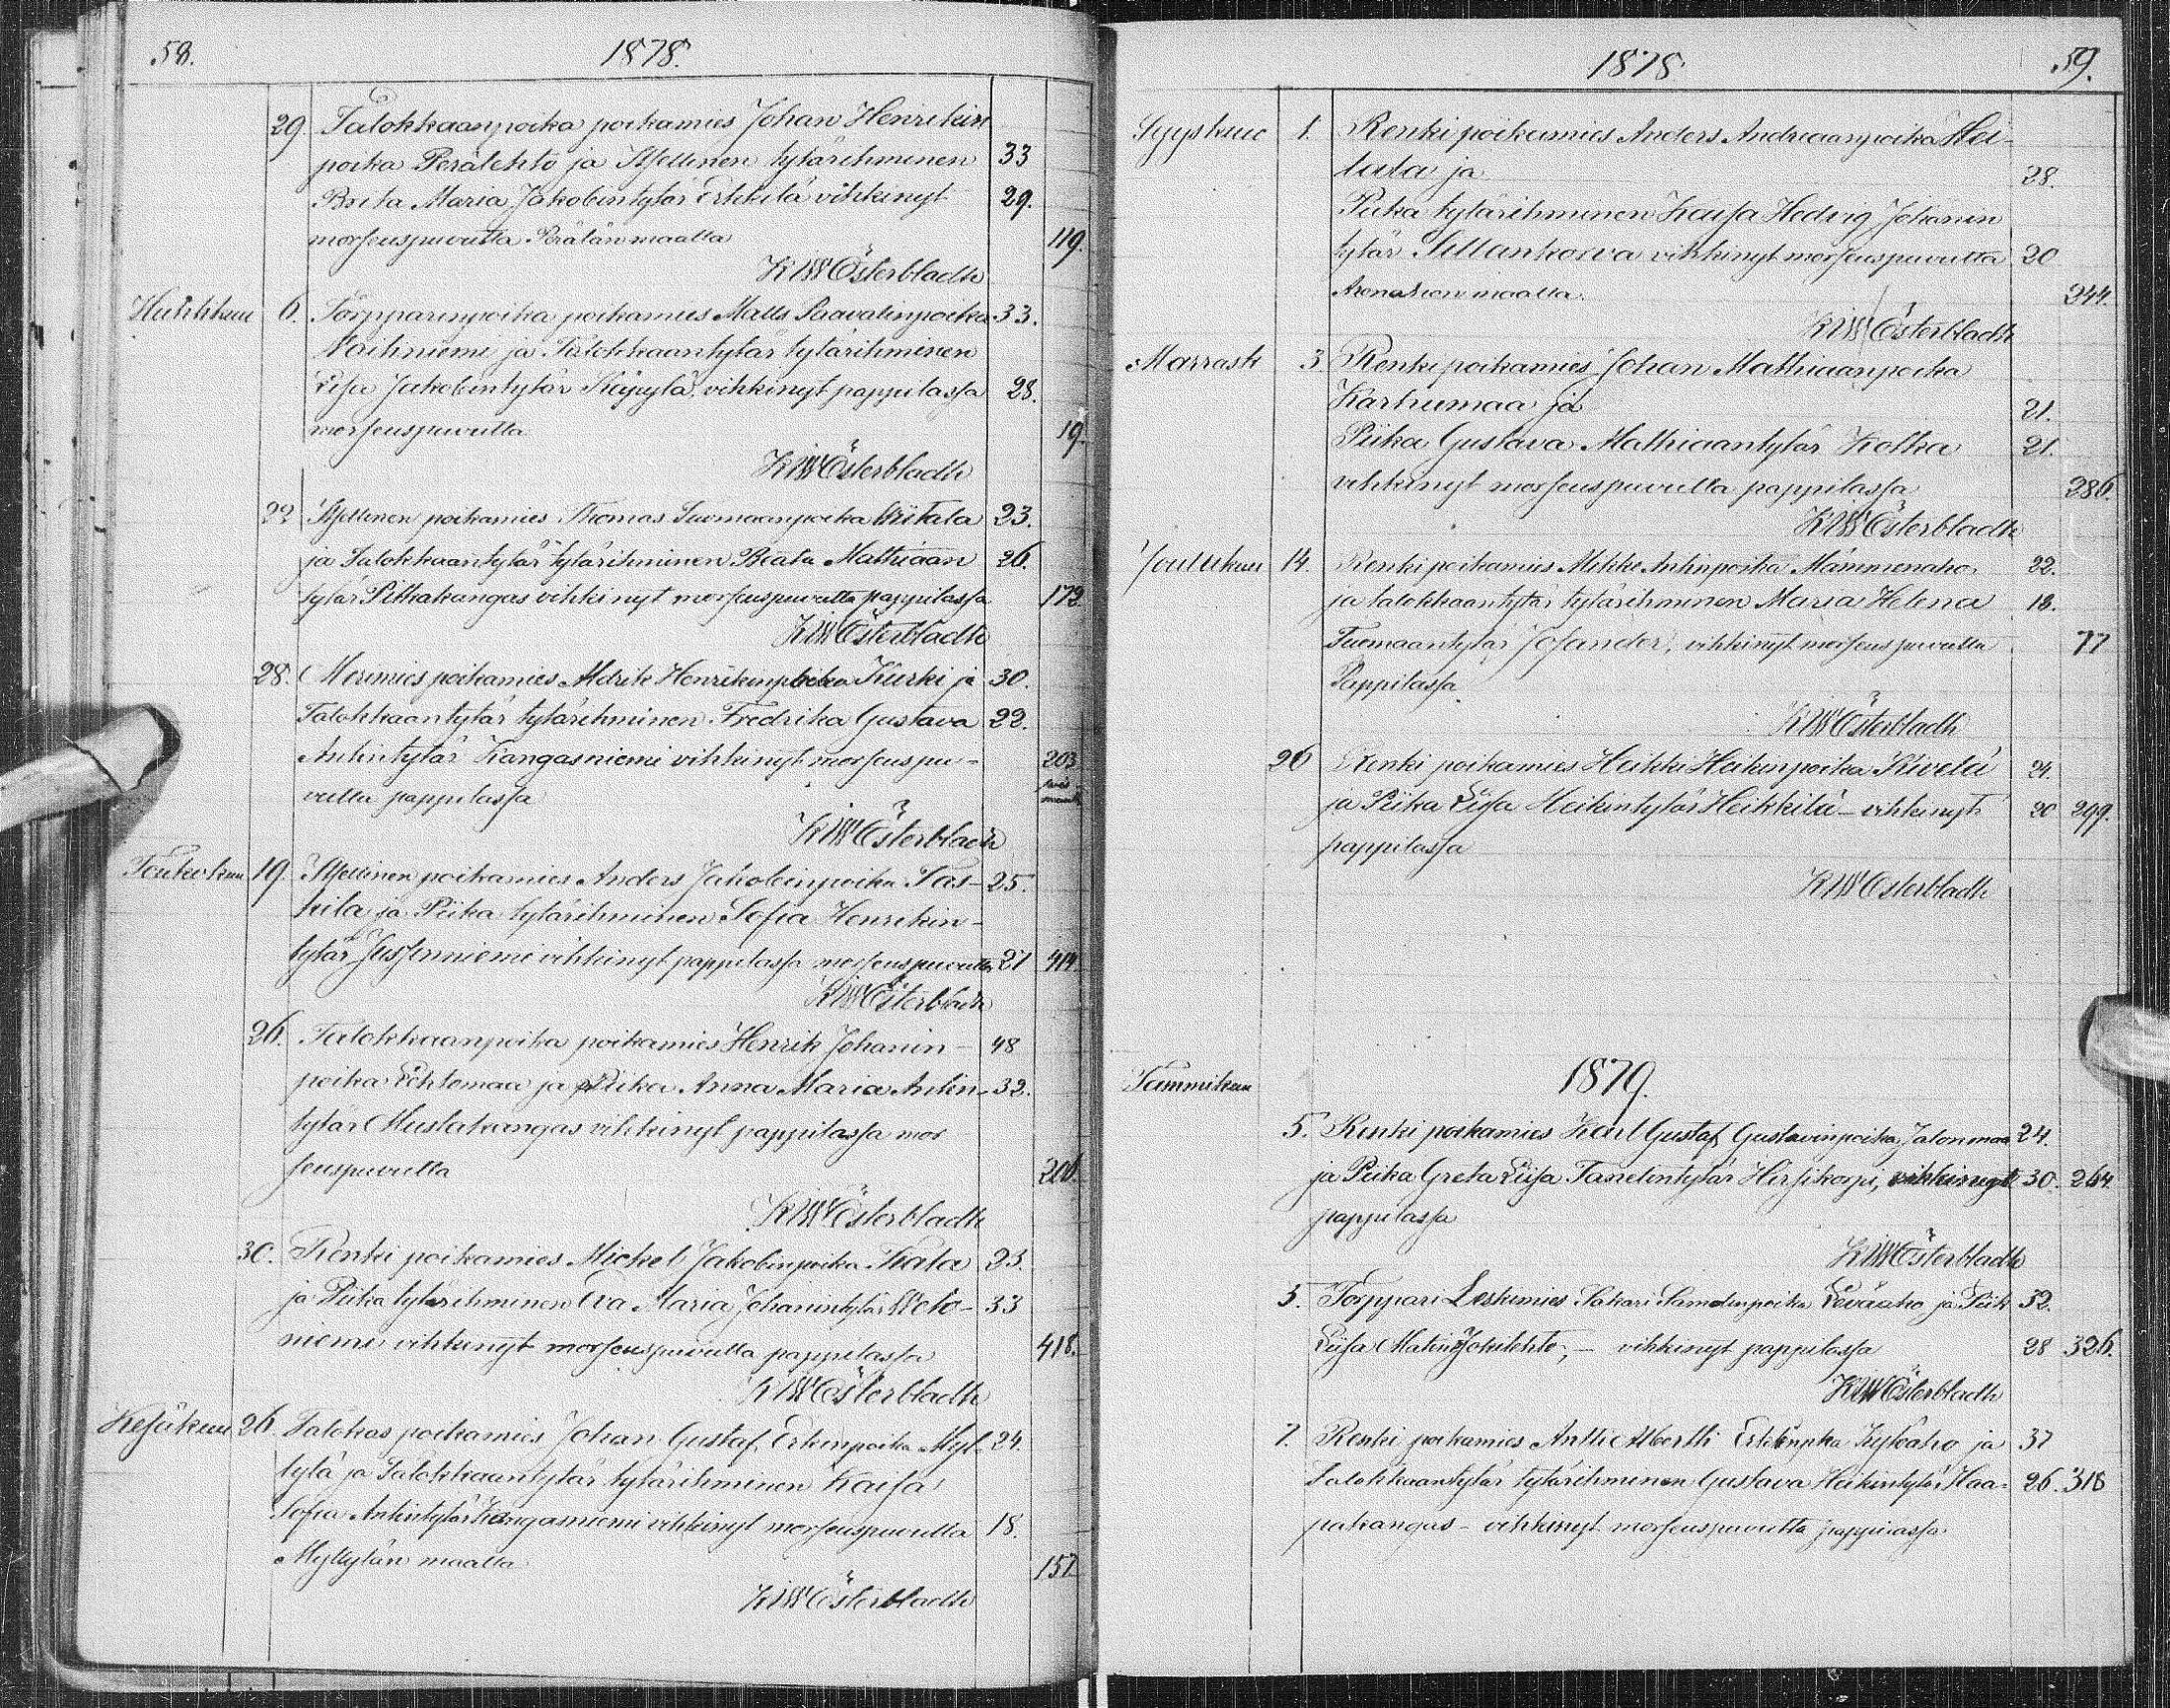 58.
1878.
29. Talokkaanpoika poikamies Johan Henrikin
poika Perälehto ja Itsellinen tytärihminen 33
Brita Maria Jakobintytär Erkkilä vihkinyt 29.
morseuspuvulla Perälän maalla 119.
KWÖsterbladh
Huhtikuu 6. Törpparinpoika poikamies Matts Paavalinpoika 33.
ja Talokkaantytär tytärihminen
Lisa Jakobintytär vihkinyt pappilassa 28.
morseuspuvulla 19.
KWÖsterbladh
22 Itsellinen poikamies Thomas Tuomaanpoika Wiitala 23.
ja Talokkaantytär tytärihminen Beata Mathiaan 26.
tytär Pitkäkangas vihkinyt morseuspuvulla pappilassa 172
KWÖsterbladh
28. Merimies poikamies Henrikinpoika Kurki ja 30.
Talokkaantytär tytärihminen Fredrika Gustava 22.
Antintytär Kangasniemi vihkinyt morseuspu- 203
vulla pappilassa
KWÖsterbladh
Toukokuu 19. Itsellinen poikamies Anders Jakobinpoika Tas- 25.
kila ja Piika tytärihminen Sofia Henrikin-
tytär Jussinniemi vihkinyt pappilassa morseuspuvulla 27 414.
KWÖsterbladh
26. Talokkaanpoika poikamies Henrik Johanin- 48
poika Lehtomaa ja Piika Anna Maria Antin- 32.
tytär Mustakangas vihkinyt pappilassa mor
seuspuvulla 206.
KWÖsterbladh
30. Renki poikamies Mickel Jakobinpoika 23.
ja Piika tytärihminen Eva Maria Johanintytär Weto- 33
niemi vihkinyt morseuspuvulla pappilassa 418.
KWÖsterbladh
Kesäkuu 26. Talokas poikamies Johan Gustaf Erkinpoika Myl- 24.
tylä ja Talokkaantytär tytärihminen Kaisa
Sofia Antintytär Kangasniemi vihkinyt morseuspuvulla 18.
Myltylän maalla 157
KWÖsterbladh
1878
59.
Syyskuu 1. Renki poikamies Anders Andreaanpoika Hei-
tala ja 28.
Piika tytärihminen Kaisa Hedvig Johanin
tytär Sillankorva vihkinyt morseuspuvulla 20
maalla. 244.
KWÖsterbladh
Marrask 3 Renki poikamies Johan Mathiaanpoika
Karhumaa ja 21.
Piika Gustava Mathiaantytär Kotka 21.
vihkinyt morseuspuvulla pappilassa 286.
KWÖsterbladh
Joulukuu 14. Renki poikamies Mikke Antinpoika Mämmenaho 22.
ja talokkaantytär tytärihminen Maria Helena 18.
Tuomaantytär Josander, vihkinyt morseuspuvulla 77
Pappilassa
KWÖsterbladh
26 Renki poikamies Heikki Heikinpoika Kivelä 24.
ja Piika Liisa Heikintytär Heikkilä - vihkinyt 20 299.
pappilassa
KWÖsterbladh
Tammikuu
1879.
5. Renki poikamies Karl Gustaf Gustavinpoika Jalonmaa 24.
ja Piika Greta Liisa Tanelintytär Hirsikorpi, vihkinyt 30. 264.
pappilassa
KWÖsterbladh
5. Törppari Leskimies Sakari Samelinpoika Leväaho ja Piik 52.
Liisa Jokilehto; - vihkinyt pappilassa 28 326.
KWÖsterbladh
7. Renki poikamies Antti Albertti Erkinpka Kytöaho ja 37
Talokkaantytär tytärihminen Gustava Heikintytär Haa- 26. 318
pakangas - vihkinyt morseuspuvulla pappilassa